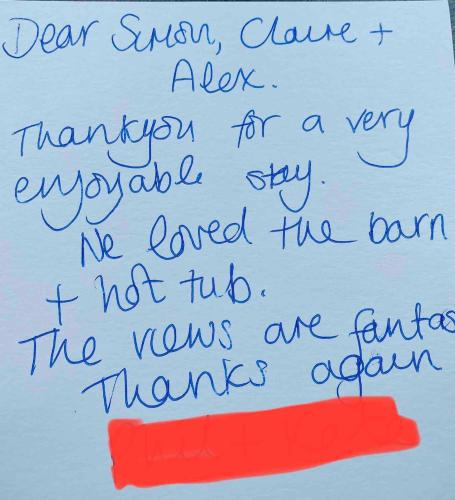 Dear Simon, Claire +
Alex.
Thankyou for a very
enjoyable stay.
We loved the barn
+ hot tub.
The views are fantas
Thanks again